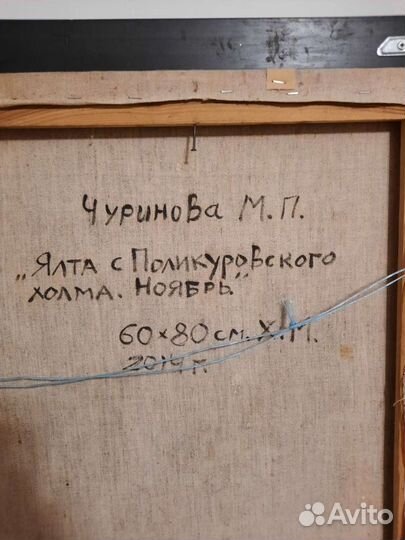 Чуринова М.П.
„Ялта с Поликуровского
холма. Ноябрь."
60×80 см. Х.М.
2014 г.
Avito